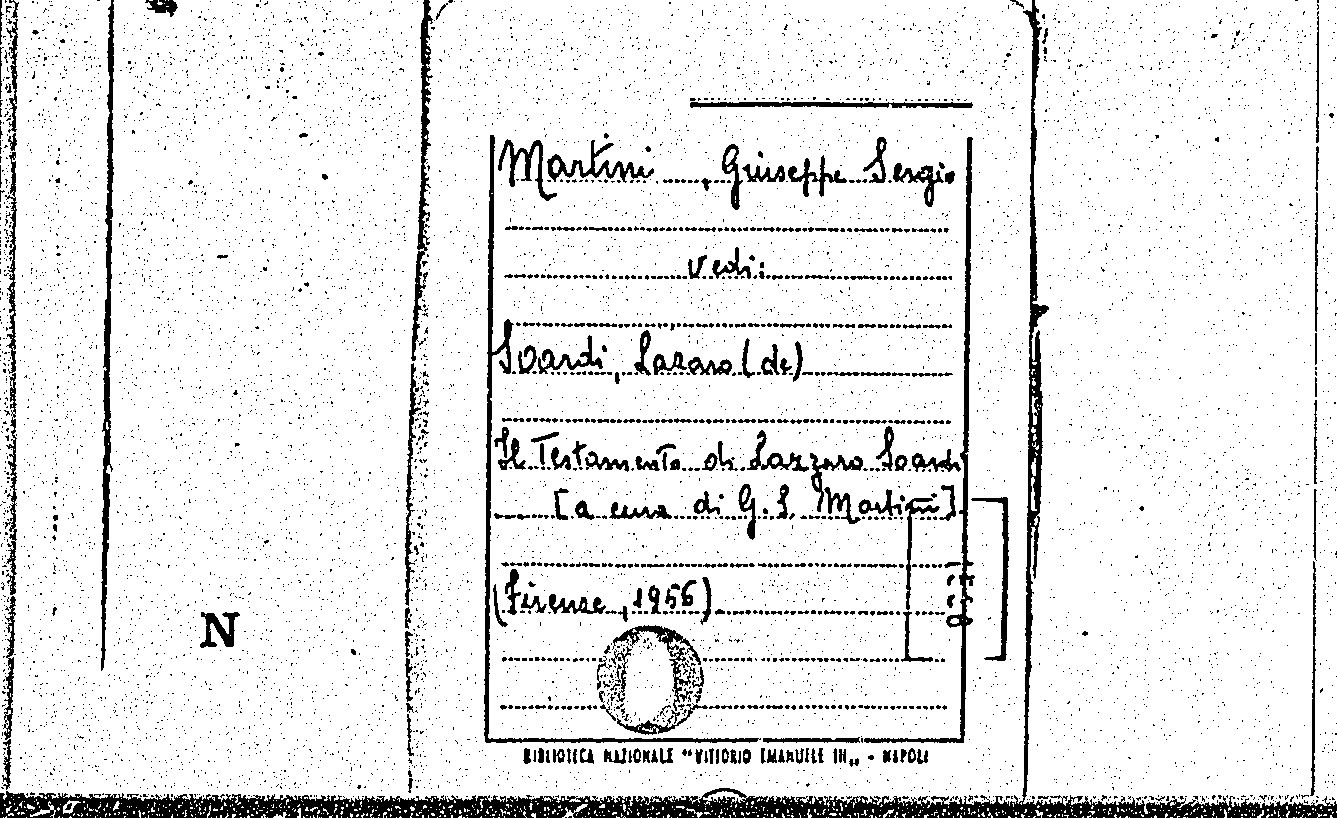 Martini , Giuseppe Sergio
vedi:
Soardi, Lazaro (de)
Il Testamento di Lazzaro Soardi
[a cura di G. S. Martini]
(Firenze, 1956)
N
BIBLIOTECA NAZIONALE "VITTORIO EMANUELE III„ - NAPOLI